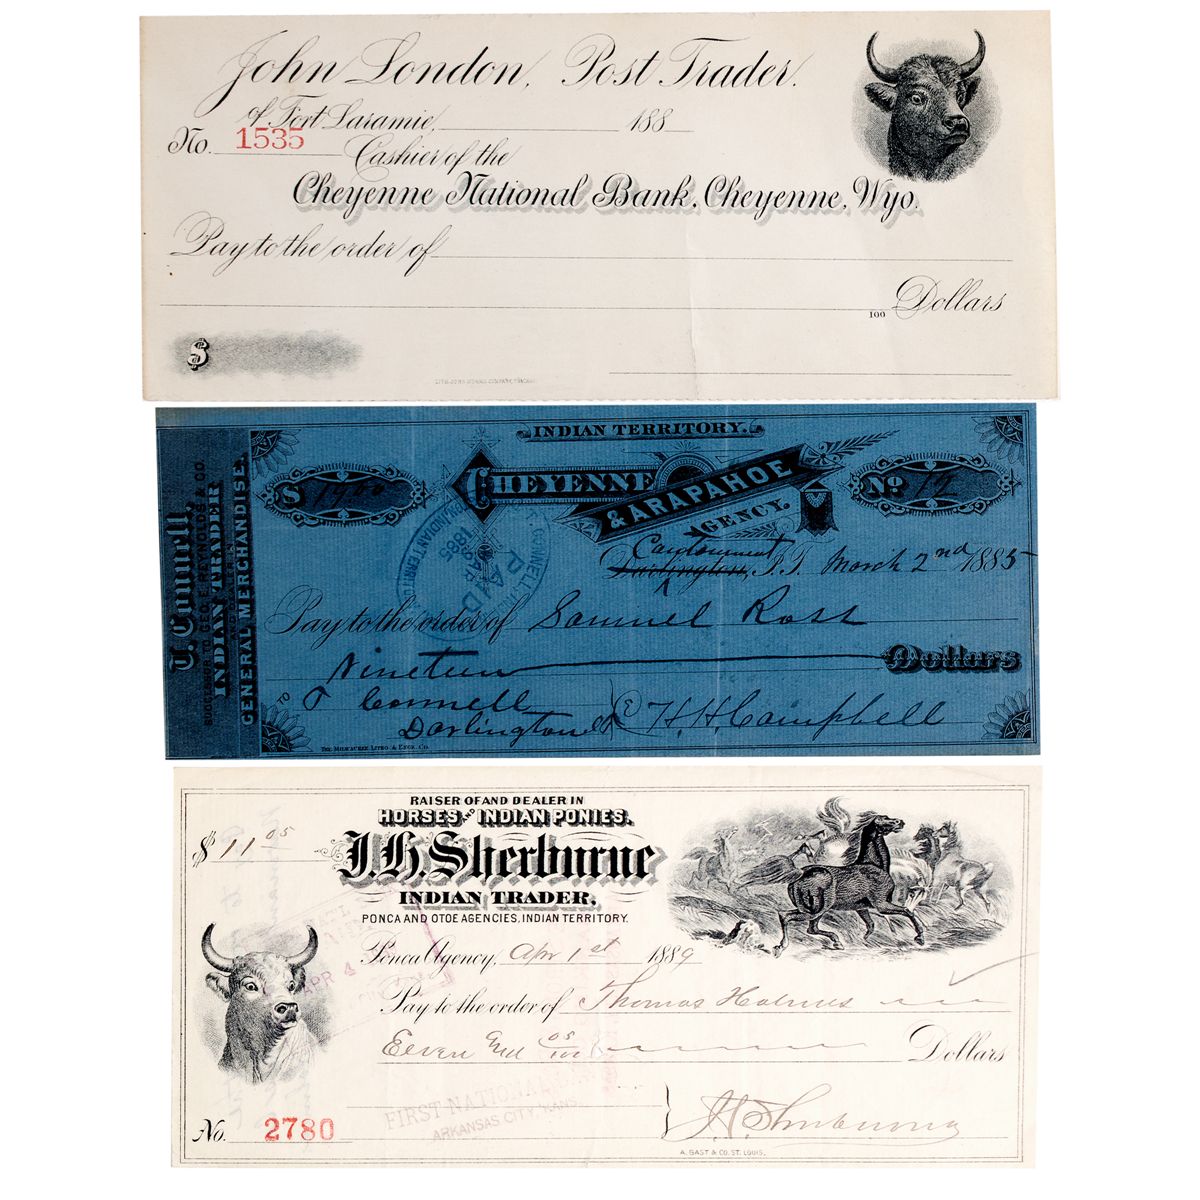 John London, Post Trader.
of Fort Laramie, 188
No. 1535
Cashier of the
Cheyenne National Bank, Cheyenne, Wyo.
Pay to the order of
100 Dollars
$
INDIAN TERRITORY.
T. Connell,
SUCCESSOR TO GEO. E. REYNOLDS & CO.
INDIAN TRADER
AND DEALER IN
GENERAL MERCHANDISE.
$ 19.00 CHEYENNE & ARAPAHOE AGENCY. No 19
CONNELL
PAID
MAR
1885
INDIAN TERRITORY
Cantonment
Darlington, I.T. March 2nd 1885
Pay to the order of Samuel Ross
Nineteen Dollars
TO T Connell
Darlington
H.H. Campbell
THE MILWAUKEE LITHO & ENGR. CO.
RAISER OF AND DEALER IN
HORSES AND INDIAN PONIES.
$ 11 05
J.H. Sherburne
INDIAN TRADER,
PONCA AND OTOE AGENCIES, INDIAN TERRITORY.
Ponca Agency, Apr 1st 1889
APR 4
Pay to the order of Thomas Holmes
Eleven and 05/100 Dollars
FIRST NATIONAL BANK
ARKANSAS CITY, KANS.
No. 2780
J.H. Sherburne
A. GAST & CO. ST. LOUIS.